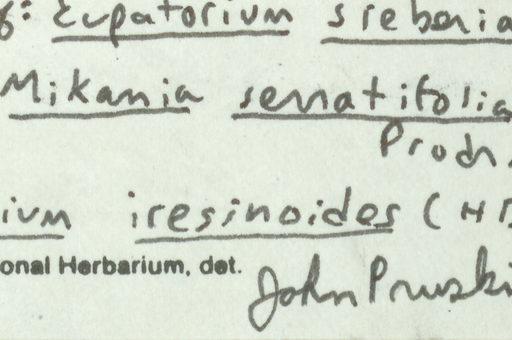 : Eupatorium sieberia
Mikania serratifolia
Prodr.
ium iresinoides (HB
onal Herbarium, det.
John Pruski